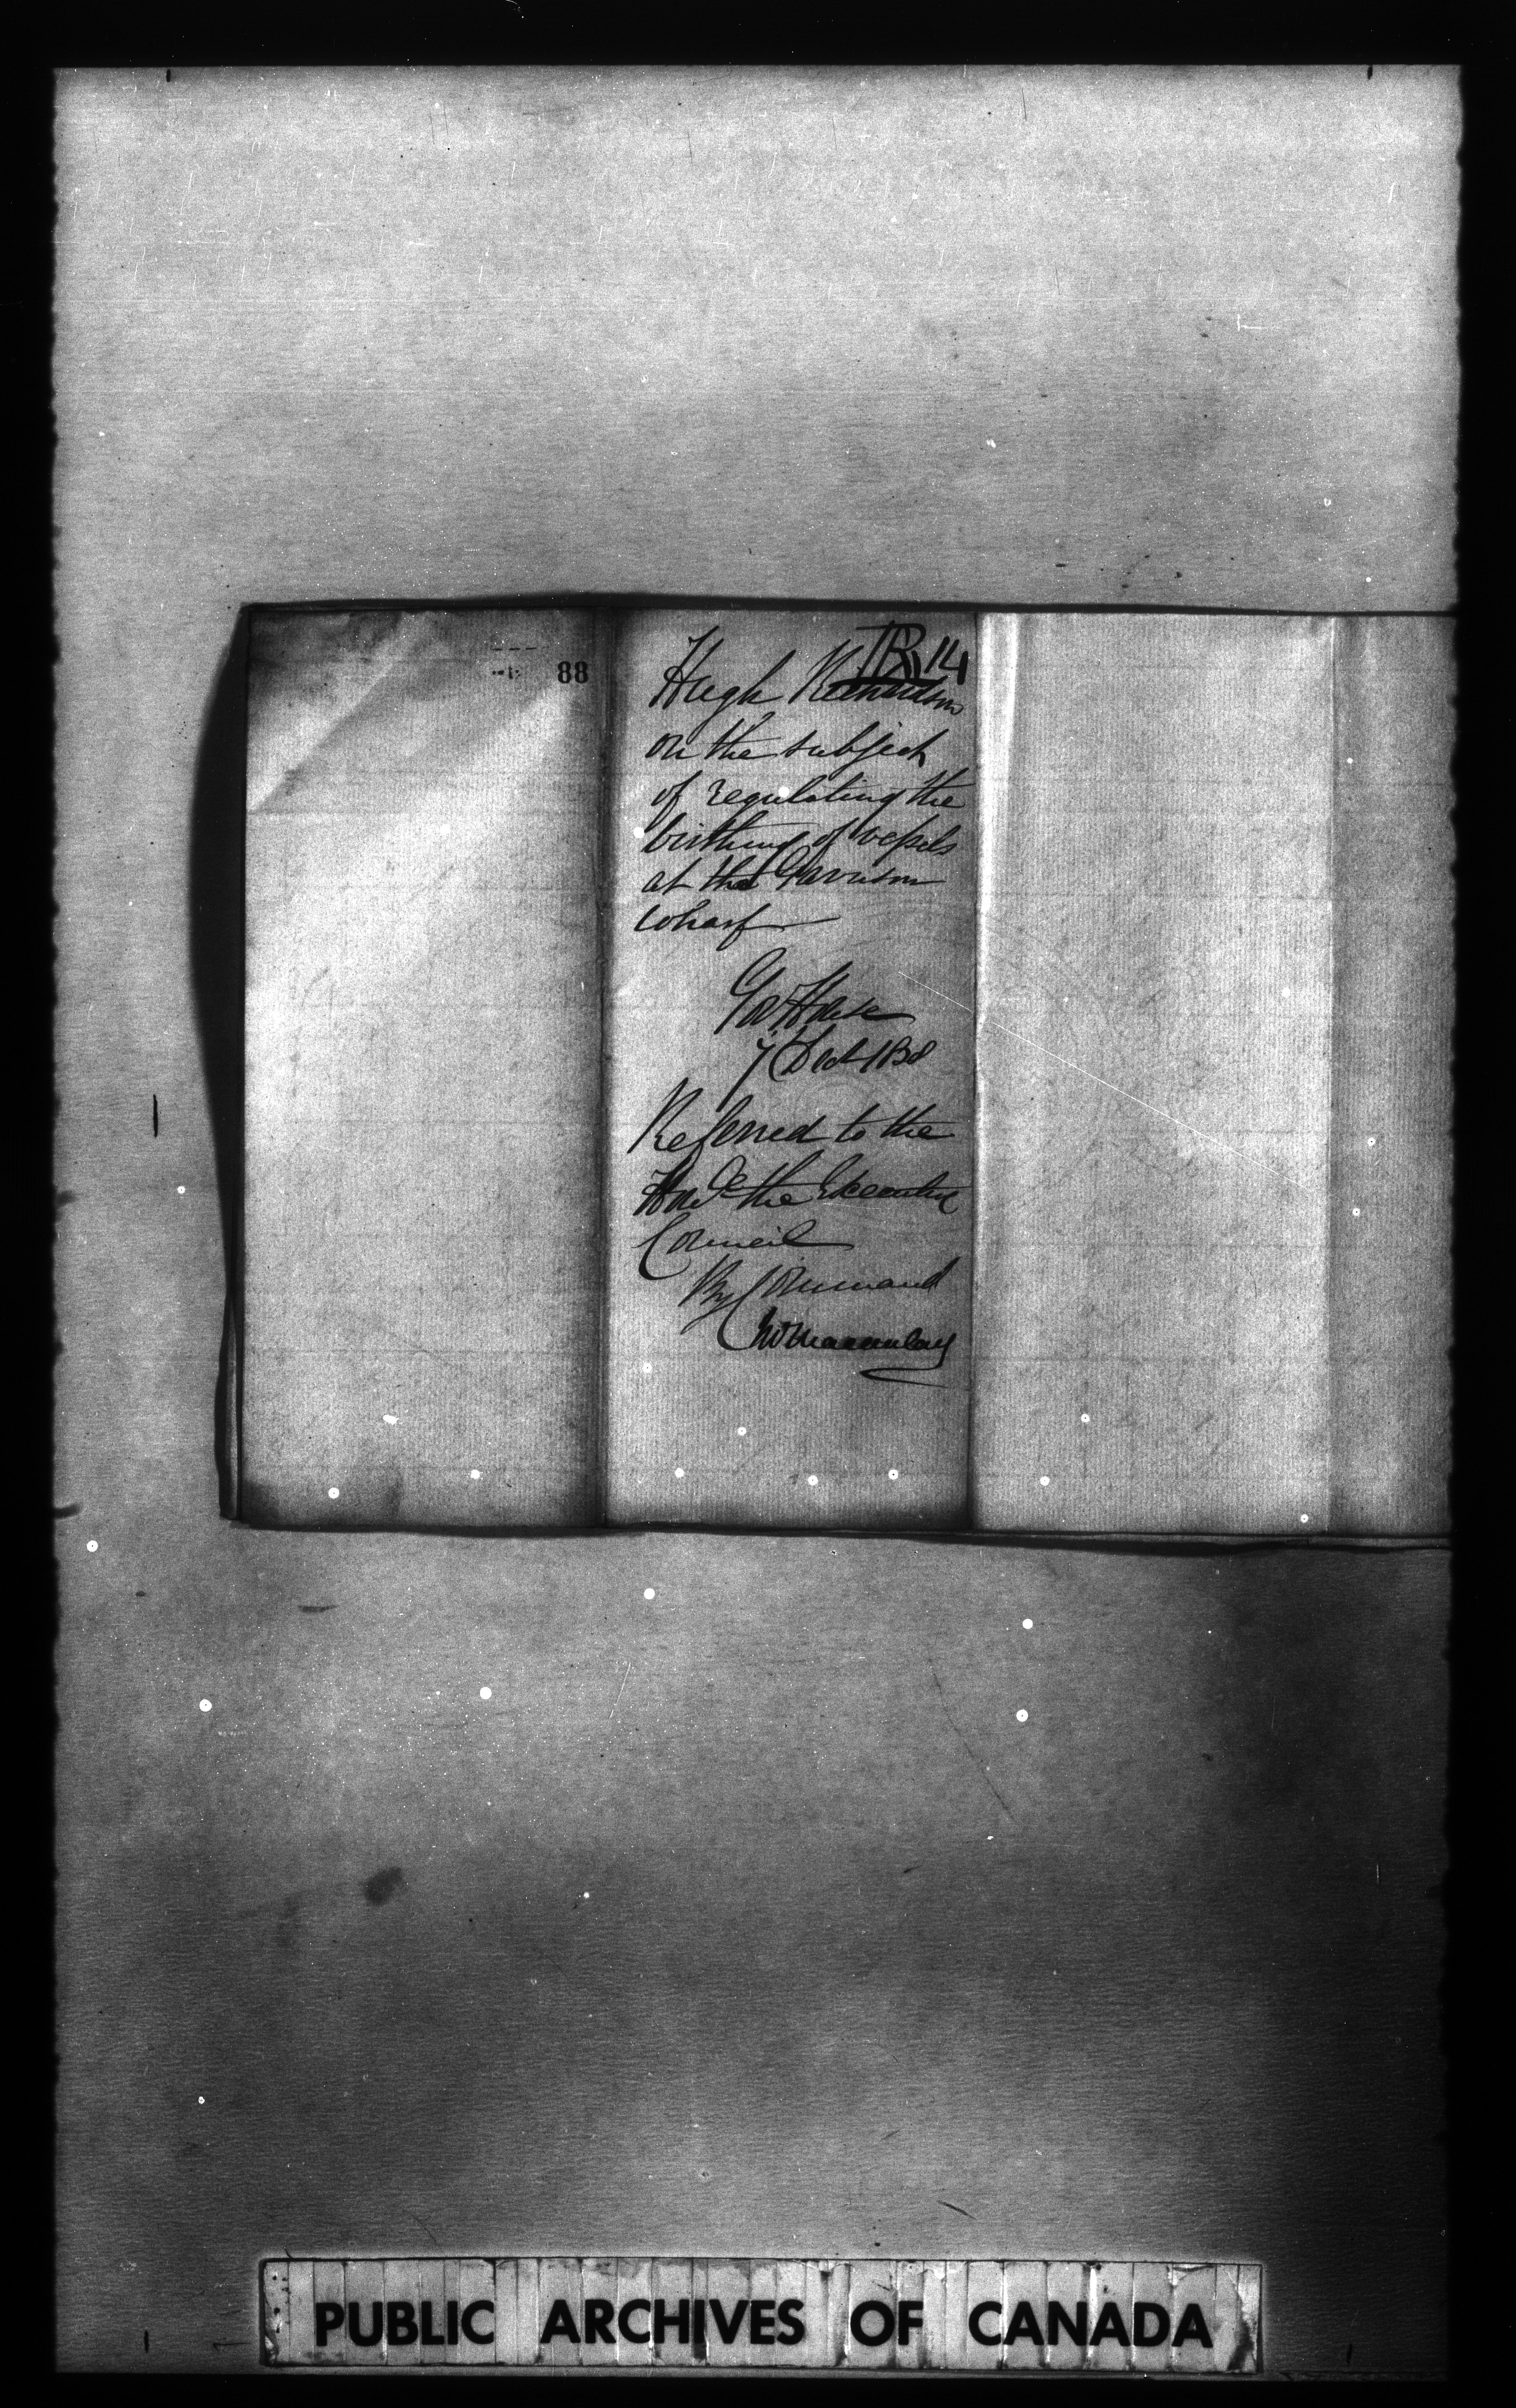 88
R 14
Hugh Richardson
on the subject
of regulating the
birthing of vessels
at the Garrison
Wharf
Gov House
7 Dec 1838
Referred to the
Honble the Executive
Council
By Command
Jno Macaulay
PUBLIC ARCHIVES OF CANADA